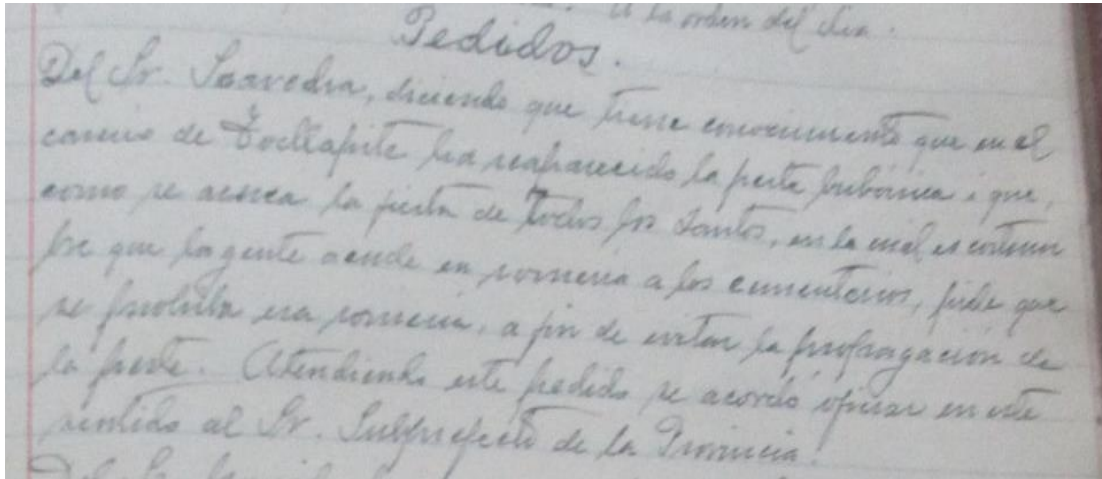 a la orden del dia.
Pedidos.
Del Sr. Saavedra, diciendo que tiene conocimiento que en el
caserio de Tocllapite ha reaparecido la peste bubónica i que,
como se acerca la fiesta de Todos los Santos, en la cual es costum
bre que la gente acude en romeria a los cementerios, pide que
se prohiba esa romeria, a fin de evitar la propagación de
la peste. Atendiendo este pedido se acordó oficiar en este
sentido al Sr. Subprefecto de la Provincia.
Del Sr.